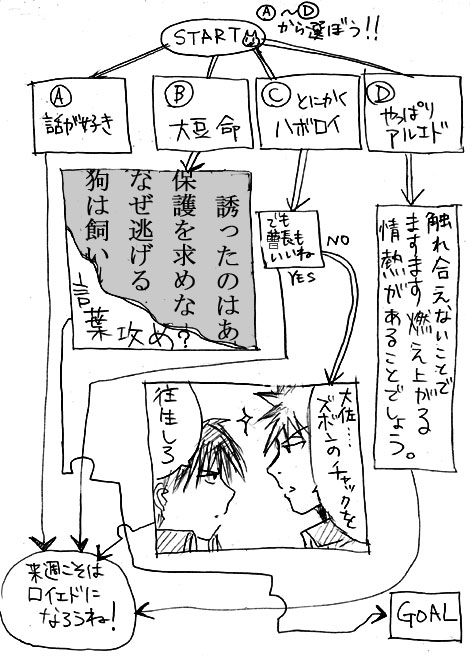 START
Ⓐ～Ⓓ
から選ぼう!!
Ⓐ
話が好き
Ⓑ
大豆命
Ⓒ とにかく
ハボロイ
Ⓓ
やっぱり
アルエド
誘ったのはあ
保護を求めな
なぜ逃げる
狗は飼い
言葉攻め?
でも
曹長も
いいね
NO
YES
触れ合えないことで
ますます燃え上がる
情熱があることでしょう。
大佐……
ズボンのチャックを
往生しろ
来週こそは
ロイエドに
なろうね!
GOAL